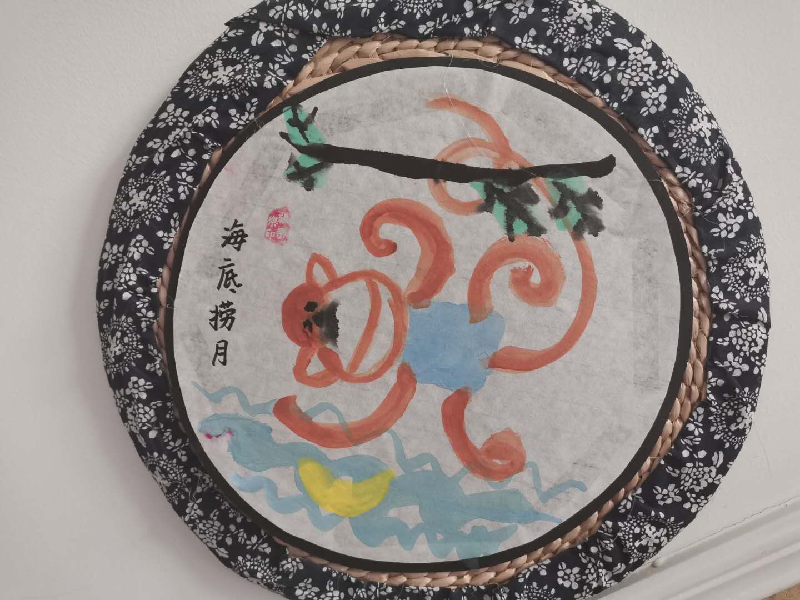 海底捞月